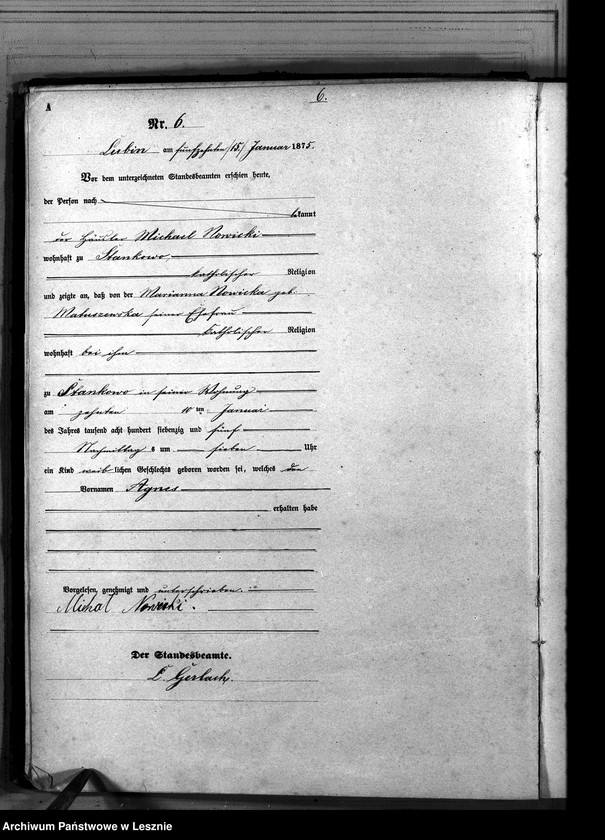 6.
A
Nr. 6.
Lubin am fünfzehnten /15/ Januar 1875.
Vor dem unterzeichneten Standesbeamten erschien heute,
der Person nach
bekannt
der Häusler Michael Nowicki
wohnhaft zu Stankowo
katholischer Religion
und zeigte an, daß von der Marianna Nowicka geb.
Matuszewska seiner Ehefrau
katholischer Religion
wohnhaft bei ihm
zu Stankowo in seiner Wohnung
am zehnten 10ten Januar
des Jahres tausend acht hundert siebenzig und fünf
Nachmittags um sieben Uhr
ein Kind weiblichen Geschlechts geboren worden sei, welches den
Vornamen Agnes
erhalten habe
Vorgelesen, genehmigt und unterschrieben.
Michał Nowicki.
Der Standesbeamte.
Gerlach.
Archiwum Państwowe w Lesznie